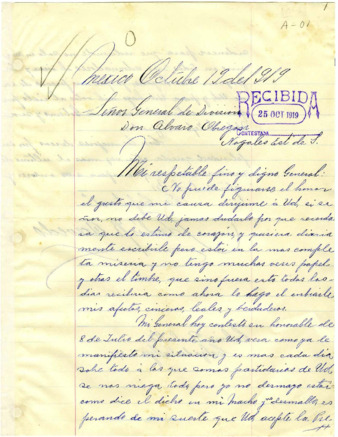 A-01
1
Mexico Octubre 19 del 919
Señor General de Division
Don Alvaro Obregon
Nogales Est. de S.
RECIBIDA
25 OCT 1919
CONTESTADA
Mi respetable fino y digno General:
No puede figurarse el honor
el gusto que mi causa dirijirme á Ud, si se
ñor, no debe Ud jamas dudarlo por que recorda
ra que lo estimo de corazon, y quisiera diaria
mente escribirle pero estoy en la mas comple
ta miseria y no tengo muchas veces papel
y otras el timbre, que sino fuera esto todos los
dias recibiria como ahora lo hago el enbiarle
mis afectos, cinceros, leales y berdaderos.
Mi General hoy contesto su honorable de
8 de Julio del presente año Ud vera como ya le
manifiesto mi situacion, y es mas cada dia
sobre todo á los que somos partidarios de Ud,
se nos niega todo, pero yo no desmayo estoy
como dice el dicho en mi macho y es
perando de mi suerte que Ud acepte la Pre